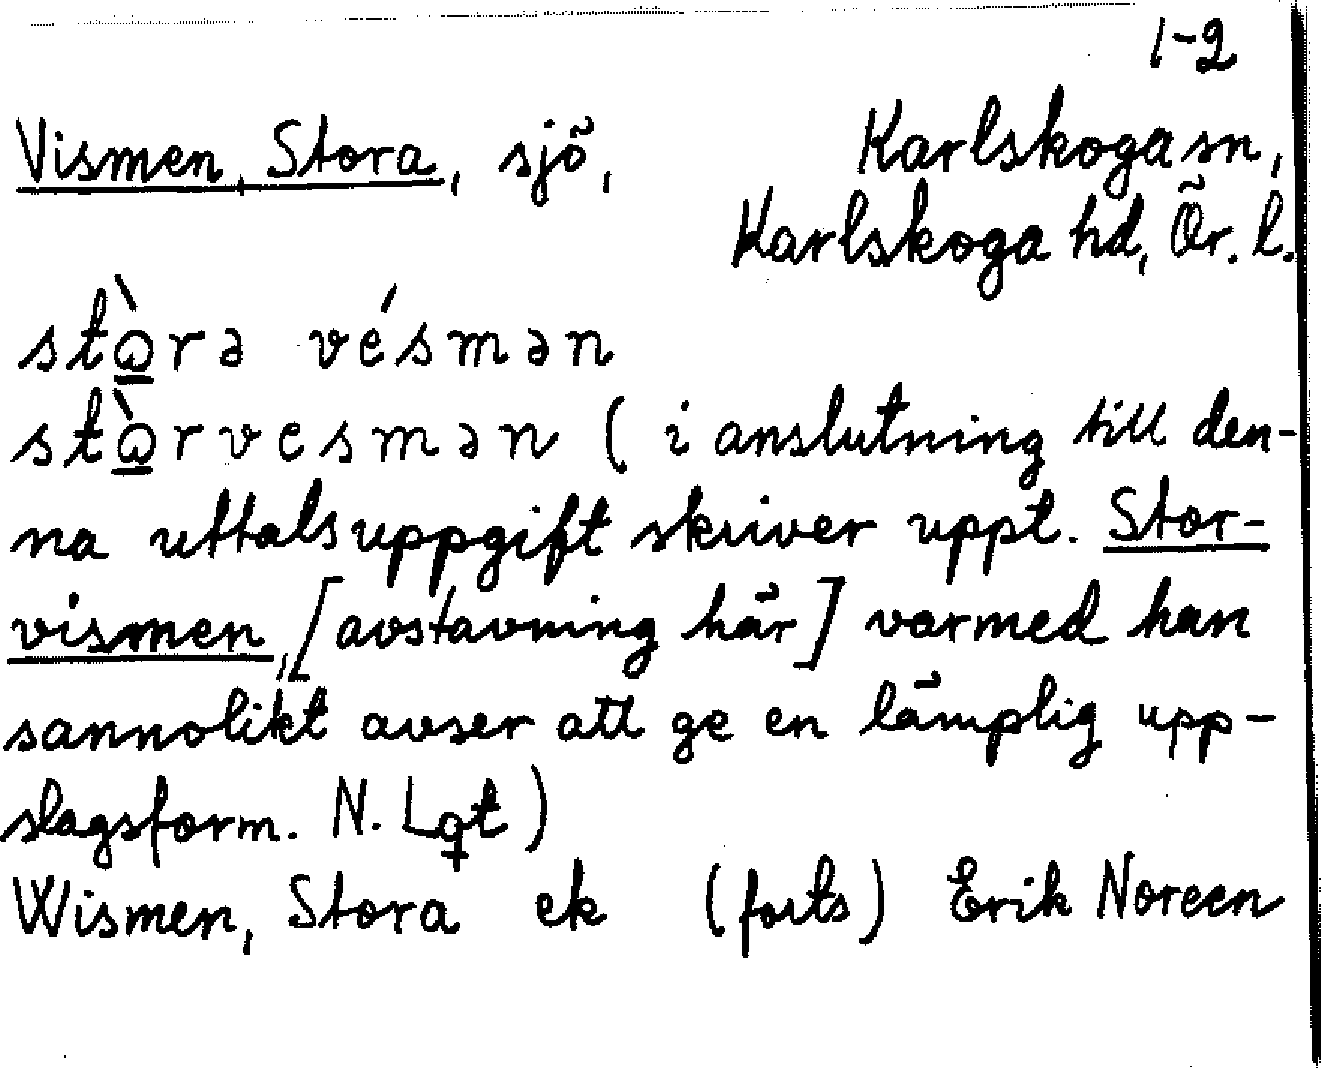 1-2
Vismen, Stora, sjö, Karlskoga sn,
Karlskoga hd, Ör. l.
stò̱rə vésmən
stò̱rvesmən (i anslutning till den-
na uttalsuppgift skriver uppt. Stor-
vismen, [avstavning här] varmed han
sannolikt avser att ge en lämplig upp-
slagsform. N. Lgt)
Wismen, Stora ek (forts) Erik Noreen